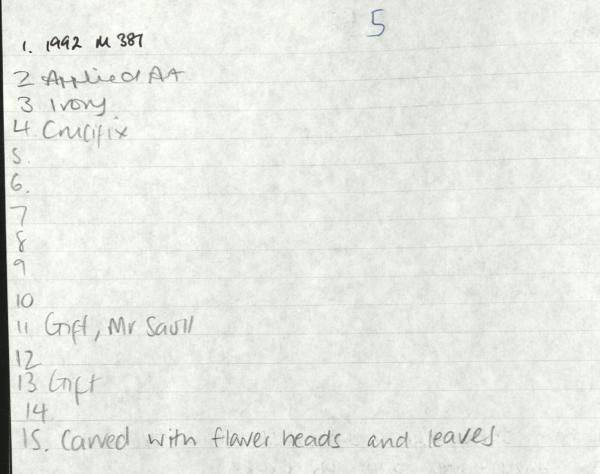 5
1. 1992 M 387
2 Applied Art
3 Ivory
4 Crucifix
5.
6.
7
8
9
10
11 Gift, Mr Savill
12
13 Gift
14
15. Carved with flower heads and leaves